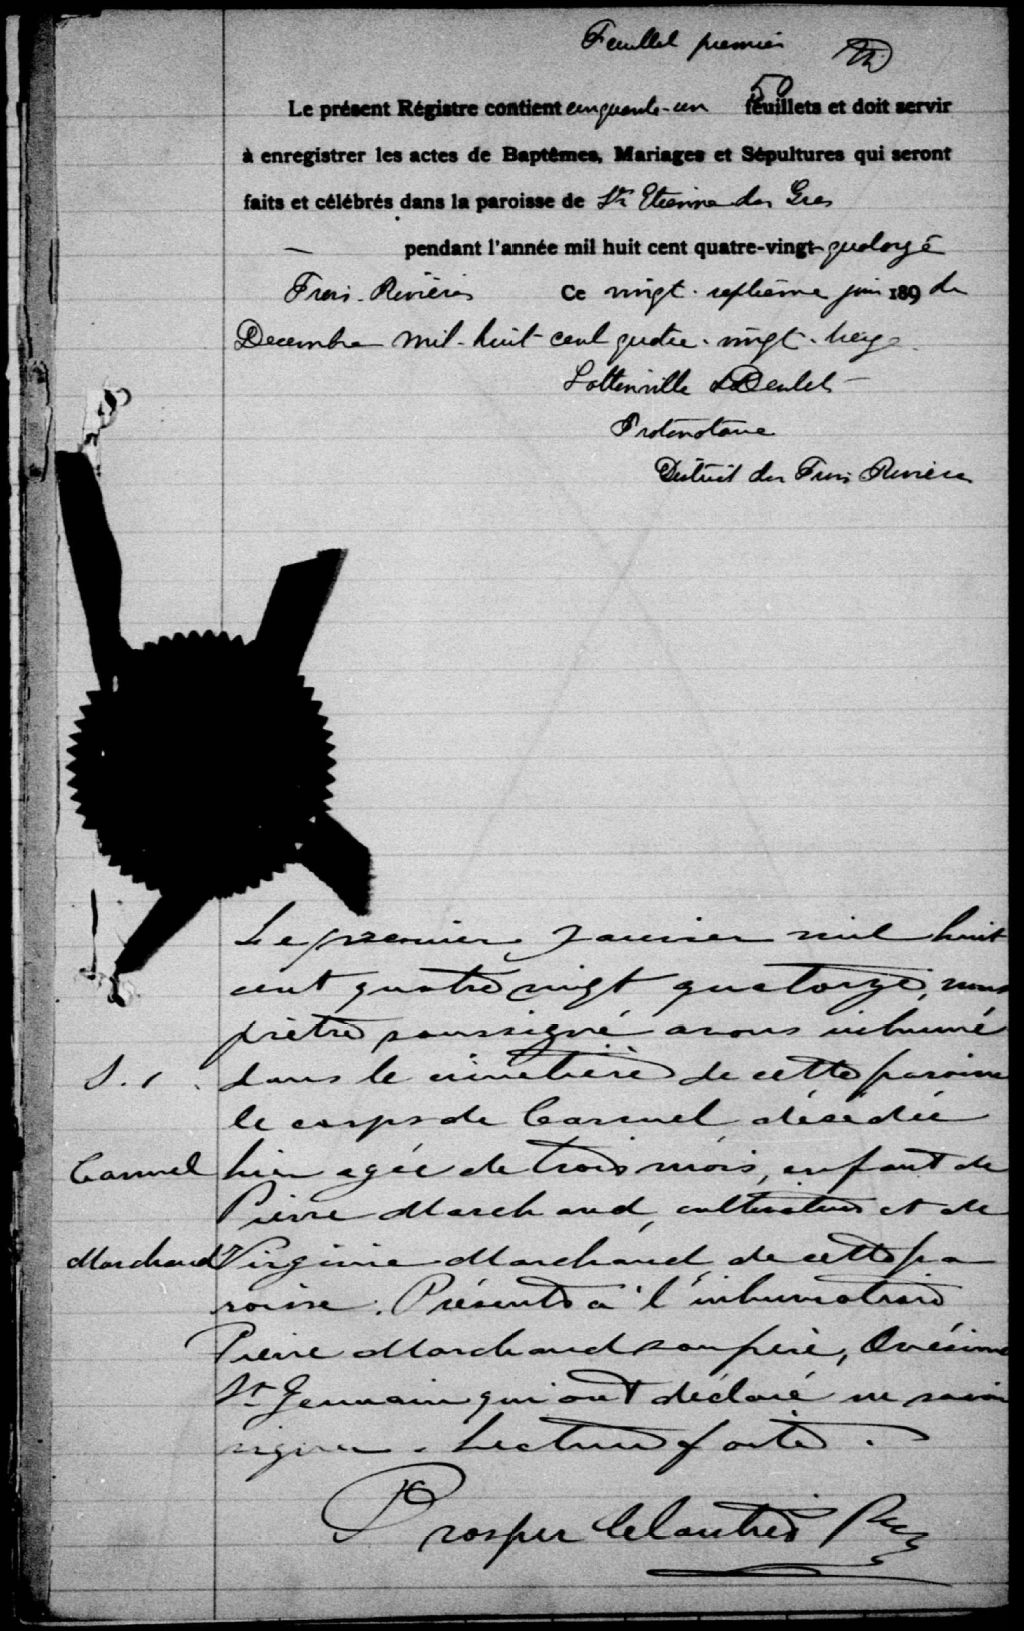 Feuillet premier
50
Le présent Régistre contient cinquante-un feuillets et doit servir
à enregistrer les actes de Baptêmes, Mariages et Sépultures qui seront
faits et célébrés dans la paroisse de St Etienne des Gres
pendant l'année mil huit cent quatre-vingt-quatorze
Trois-Rivières Ce vingt-septième jour 189 de
Decembre mil-huit cent quatre-vingt-treize.
Protonotaire
District des Trois Rivières
Le premier Janvier mil huit
cent quatre vingt quatorze, nous
prêtre soussigné avons inhumé
S. 1. dans le cimetière de cette paroisse
le corps de Carmel décédée
Carmel hier agée de trois mois, enfant de
Pierre Marchand, cultivateur et de
Marchand Virginie Marchand de cette pa
roisse. Présents à l'inhumation
Pierre Marchand son père, Onésime
St Germain qui ont déclaré ne savoir
signer. Lecture faite.
Prosper Cloutier Ptre